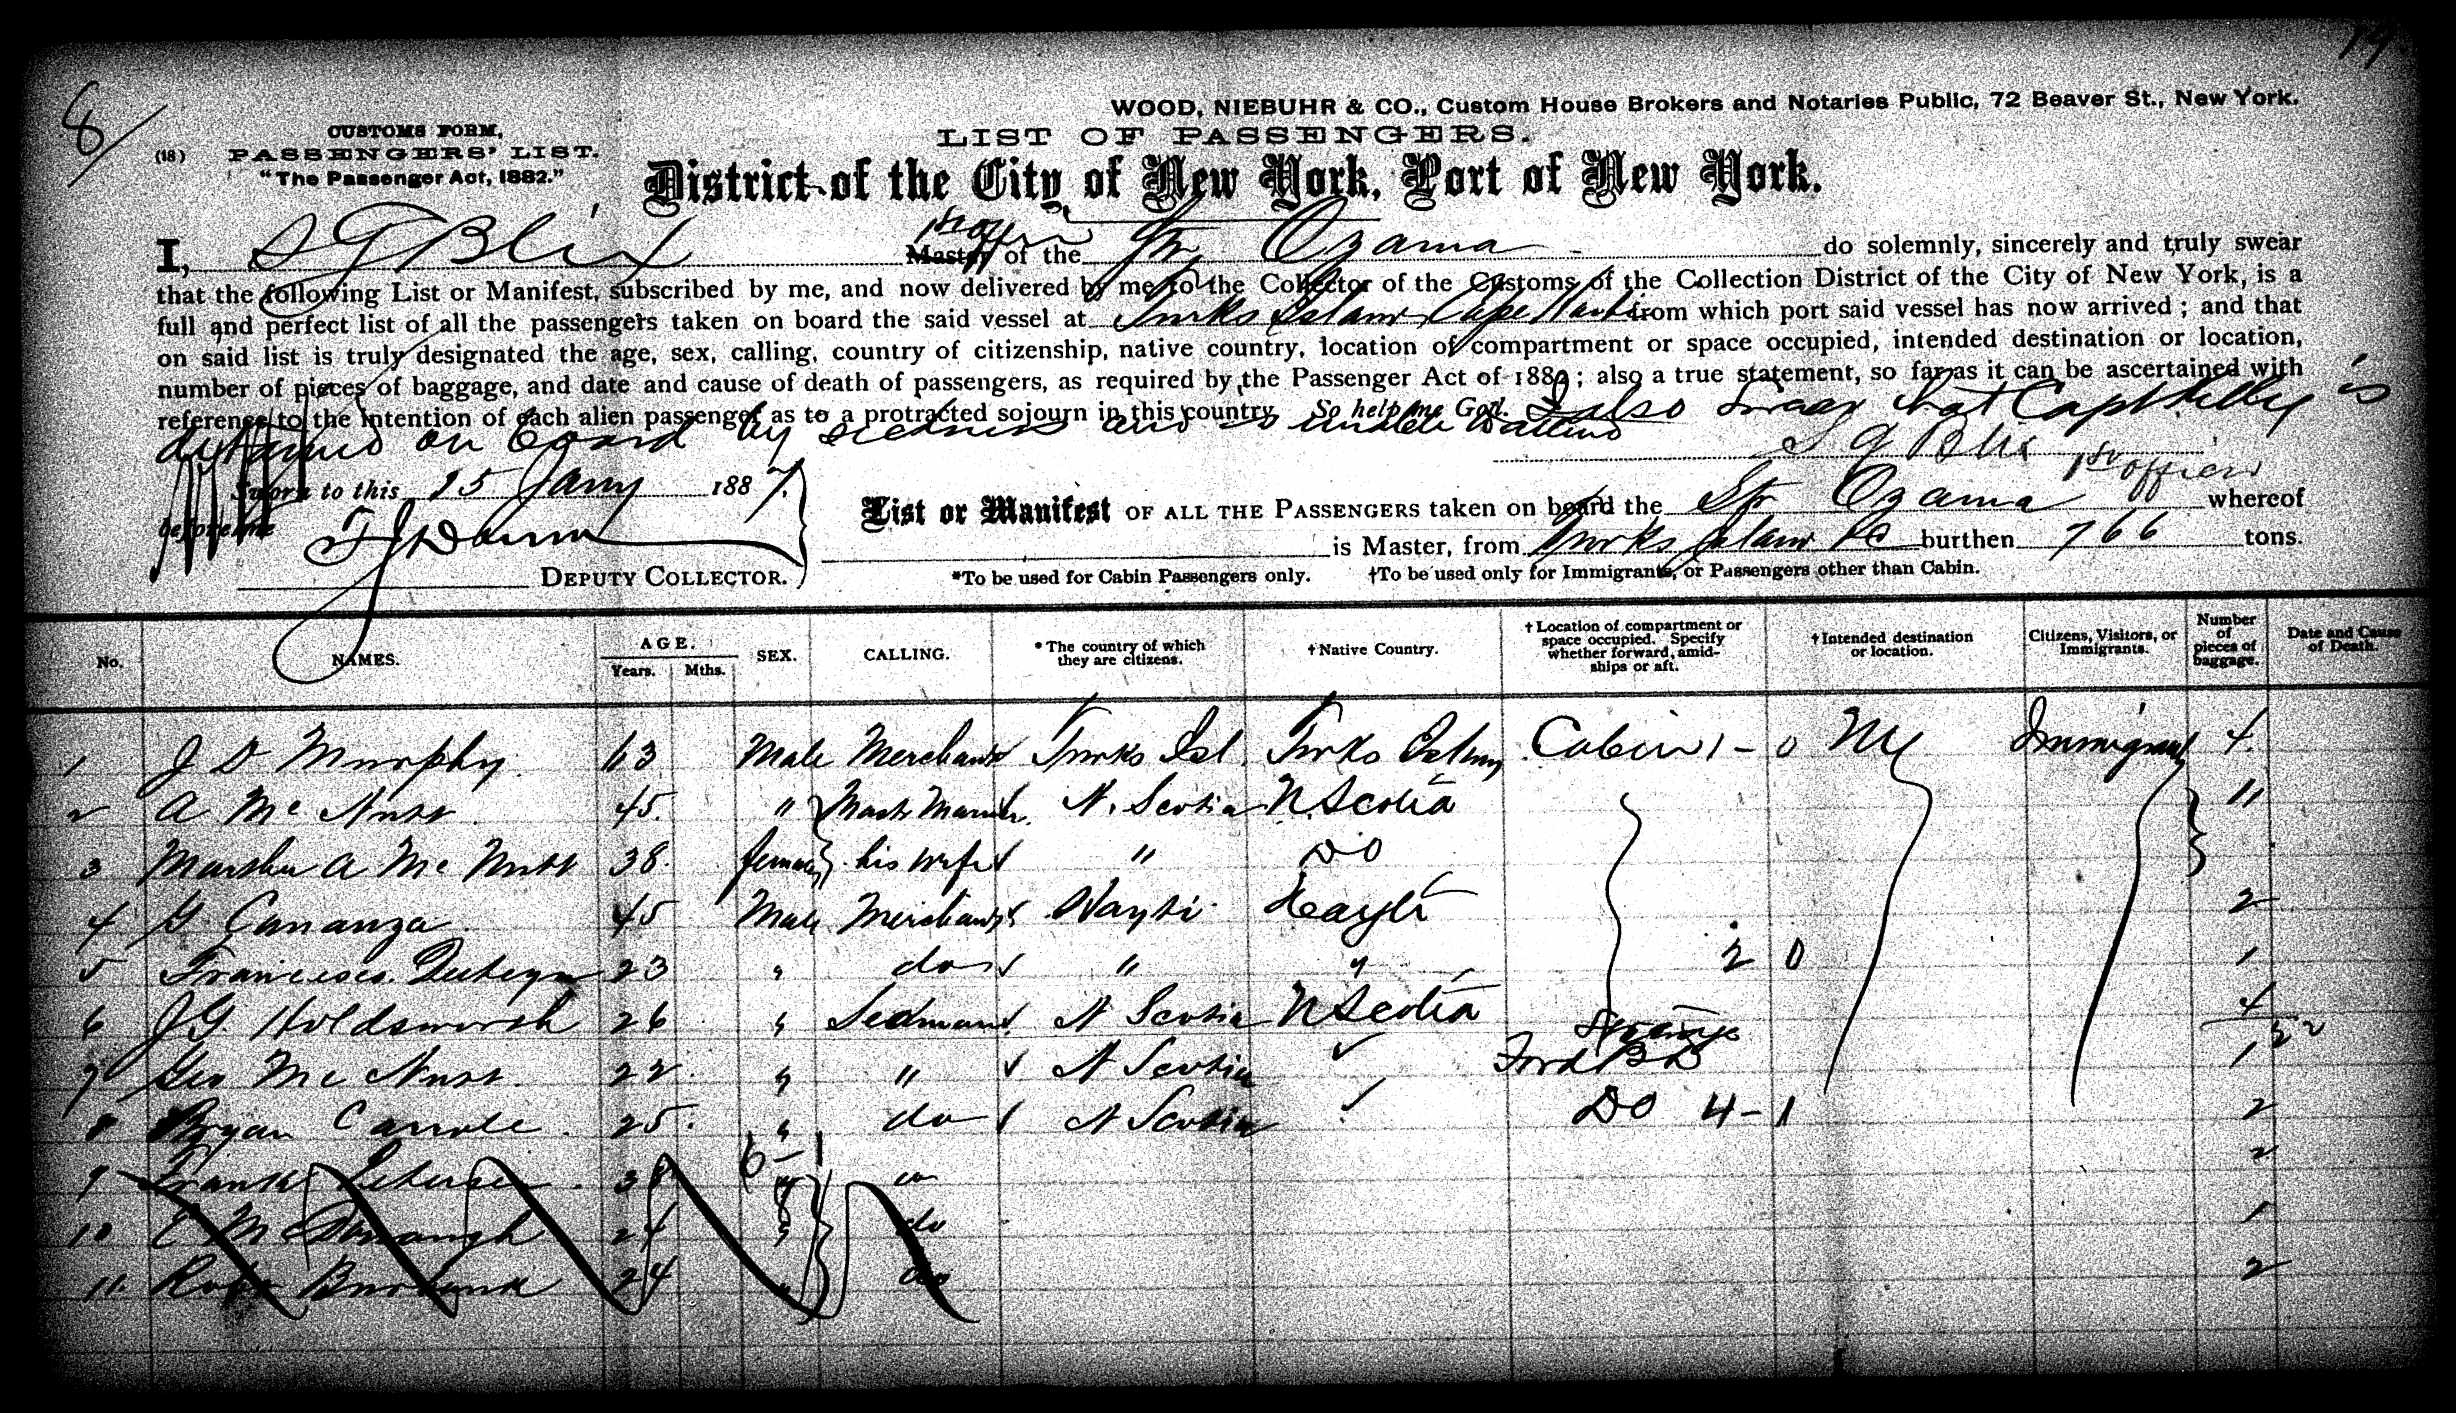 19
8
WOOD, NIEBUHR & CO., Custom House Brokers and Notaries Public, 72 Beaver St., New York.
CUSTOMS FORM,
LIST OF PASSENGERS.
(18) PASSENGERS' LIST.
"The Passenger Act, 1882."
District of the City of New York, Port of New York.
I, S G Blix 1st Offr Master of the Str Ozama do solemnly, sincerely and truly swear
that the following List or Manifest, subscribed by me, and now delivered by me to the Collector of the Customs of the Collection District of the City of New York, is a
full and perfect list of all the passengers taken on board the said vessel at Turks Island Cape Hayti from which port said vessel has now arrived; and that
on said list is truly designated the age, sex, calling, country of citizenship, native country, location of compartment or space occupied, intended destination or location,
number of pieces of baggage, and date and cause of death of passengers, as required by the Passenger Act of 1882; also a true statement, so far as it can be ascertained with
reference to the intention of each alien passenger as to a protracted sojourn in this country. So help me God. I also swear that Capt Kelly is
detained on board by sickness and so unable to attend
S G Blix 1st officer
Sworn to this 15 Jany 1887.
before me
List or Manifest OF ALL THE PASSENGERS taken on board the Str Ozama whereof
is Master, from Turks Island burthen 766 tons.
DEPUTY COLLECTOR.
*To be used for Cabin Passengers only. †To be used only for Immigrants, or Passengers other than Cabin.
No. NAMES. AGE. Years. Mths. SEX. CALLING. *The country of which they are citizens. †Native Country. †Location of compartment or space occupied. Specify whether forward, amidships or aft. †Intended destination or location. Citizens, Visitors, or Immigrants. Number of pieces of baggage. Date and Cause of Death.
1 J D Murphy 63 Male Merchant Turks Isl. Turks Island Cabin 1 - 0 NY Immigrant 4.
2 A Mc Nutt 45. " Mastr Mariner. N. Scotia N. Scotia 11
3 Martha A Mc Nutt 38. female his wife " DO
4 G Cananza 45 Male Merchant Hayti Hayti 2
5 Francisco 23 " do " " 2 0 1
6 J G. Holdsworth 26 " Seaman N Scotia N Scotia Steerage 4
22
7 Geo Mc Nutt. 22. " " N Scotia Forwd B D 1
8 Bryan Carrole. 25. " do N Scotia DO 4-1 2
6-1
9 Frank Petersen. 38 " do 2
10 E McDonaugh 24 " do 1
11. Robt Burbank 24 " do 2